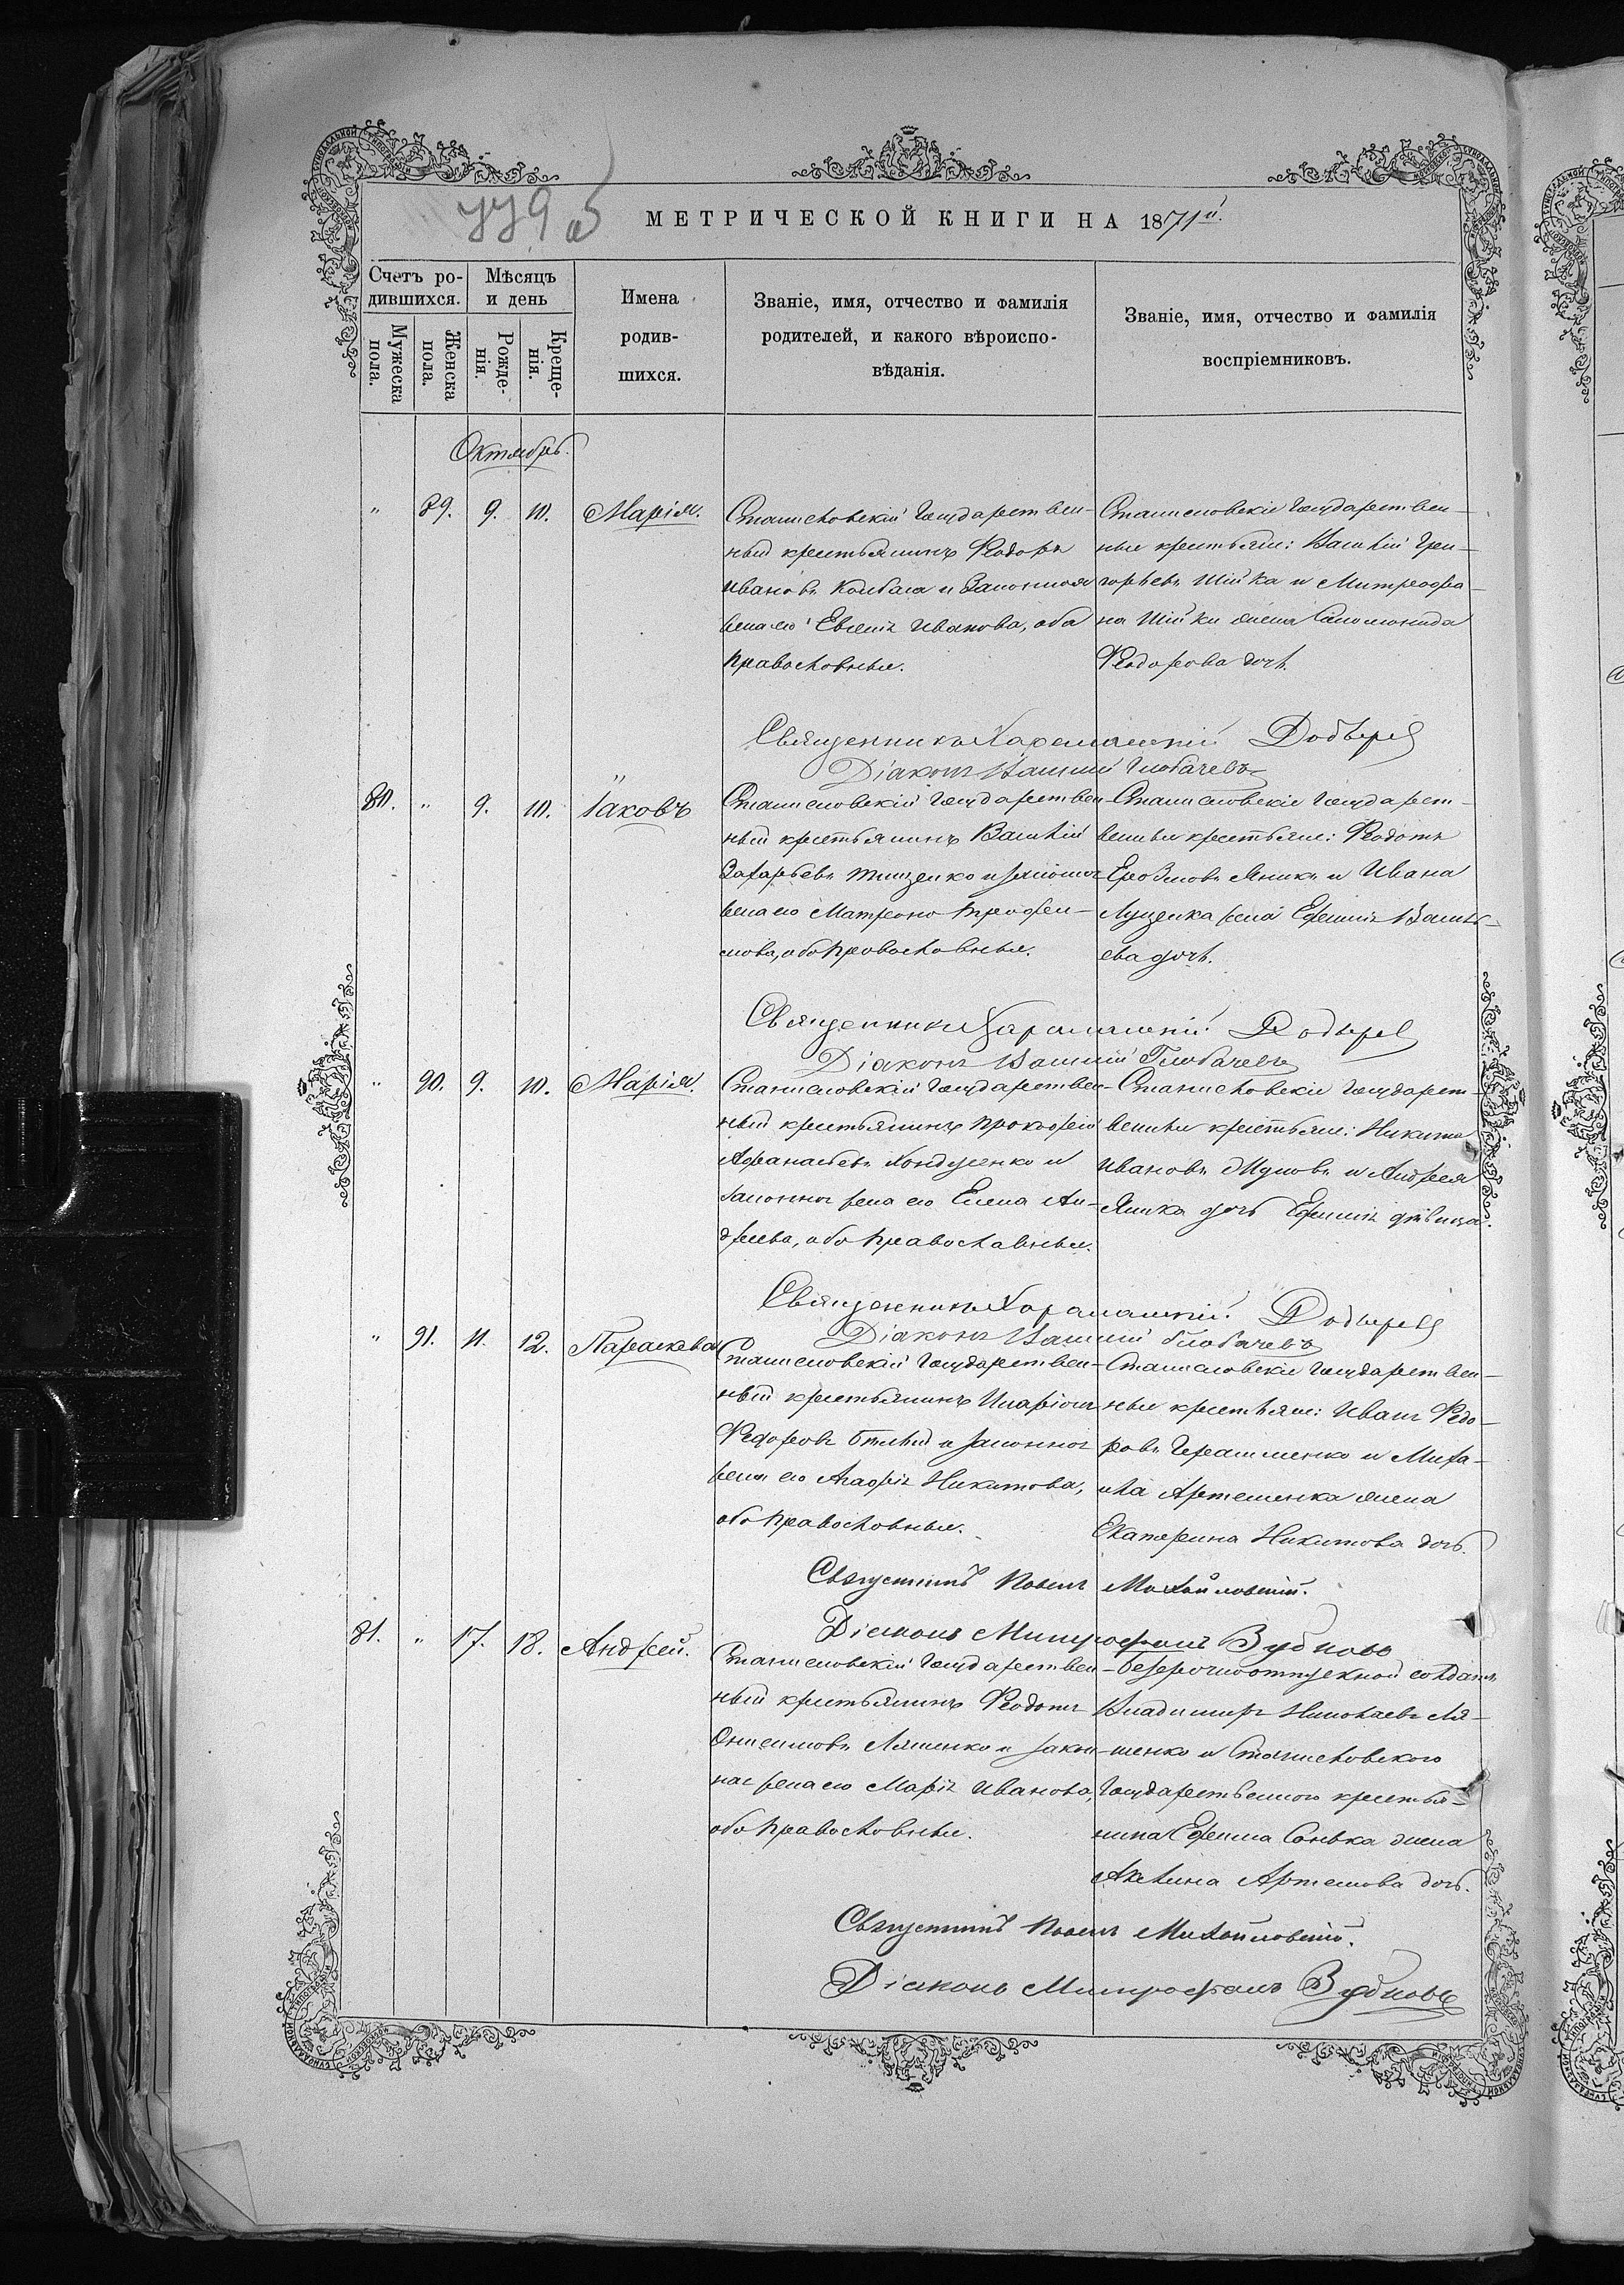 779 об
МЕТРИЧЕСКОЙ КНИГИ НА 1871й.
Счетъ ро-
дившихся.
Мѣсяцъ
и день
Мужеска
пола.
Женска
пола.
Рожде-
нія.
Креще-
нія.
Имена
родив-
шихся.
Званіе, имя, отчество и фамилія
родителей, и какого вѣроиспо-
вѣданія.
Званіе, имя, отчество и фамилія
воспріемниковъ.
Октябрь.
" 89. 9. 10. Марія.
Станиславскій Государствен-
ный крестьянинъ Ѳеодоръ
Ивановъ Колбаса и законная
жена его Евгенія Иванова, оба
православные.
Станиславскіе Государствен-
ные крестьяне: Василій Гри-
горьевъ Шійка и Митрофа-
на Шійки жена Соломонида
Ѳеодорова дочь.
Священникъ Харлампій
Діаконъ Василій Глобачевъ
80. " 9. 10. Іаковъ
Станиславскій Государствен-
ный крестьянинъ Василій
Захарьевъ Тищенко и законная
жена его Матрона Трофи-
мова, оба православные.
Станиславскіе Государст-
венные крестьяне: Ѳеодотъ
и Ивана
Луценка жена Ефимія Василь-
ева дочь.
Священникъ Харлампій
Діаконъ Василій Глобачевъ
" 90. 9. 10. Марія.
Станиславскій Государствен-
ный крестьянинъ Прокофій
Афанасьевъ Кондусенко и
законная жена его Елена Ан-
дреева, оба православные.
Станиславскіе Государст-
венные крестьяне: Никита
Ивановъ и Андрея
Яшка дочь Ефимія дѣвица.
Священникъ Харлампій
Діаконъ Василій Глобачевъ
" 91. 11. 12. Параскева
Станиславскій Государствен-
ный крестьянинъ Иларіонъ
Ѳедоровъ Бѣлый и законная
жена его Агафія Никитова,
оба православные.
Станиславскіе Государствен-
ные крестьяне: Иванъ Ѳедо-
ровъ Герасименко и Миха-
ила Артеменка жена
Екатерина Никитова дочь.
Священникъ Павелъ Михайловскій.
Діаконъ Митрофанъ Зубковъ
81. " 17. 18. Андрей.
Станиславскій Государствен-
ный крестьянинъ Ѳеодотъ
Онисимовъ Ляшенко и закон-
ная жена его Марія Иванова,
оба православные.
безсрочноотпускной солдатъ
Владимиръ Николаевъ Ля-
шенко и Станиславскаго
Государственнаго крестья-
нина Ефима Сонька жена
Акилина Артемова дочь.
Священникъ Павелъ Михайловскій.
Діаконъ Митрофанъ Зубковъ